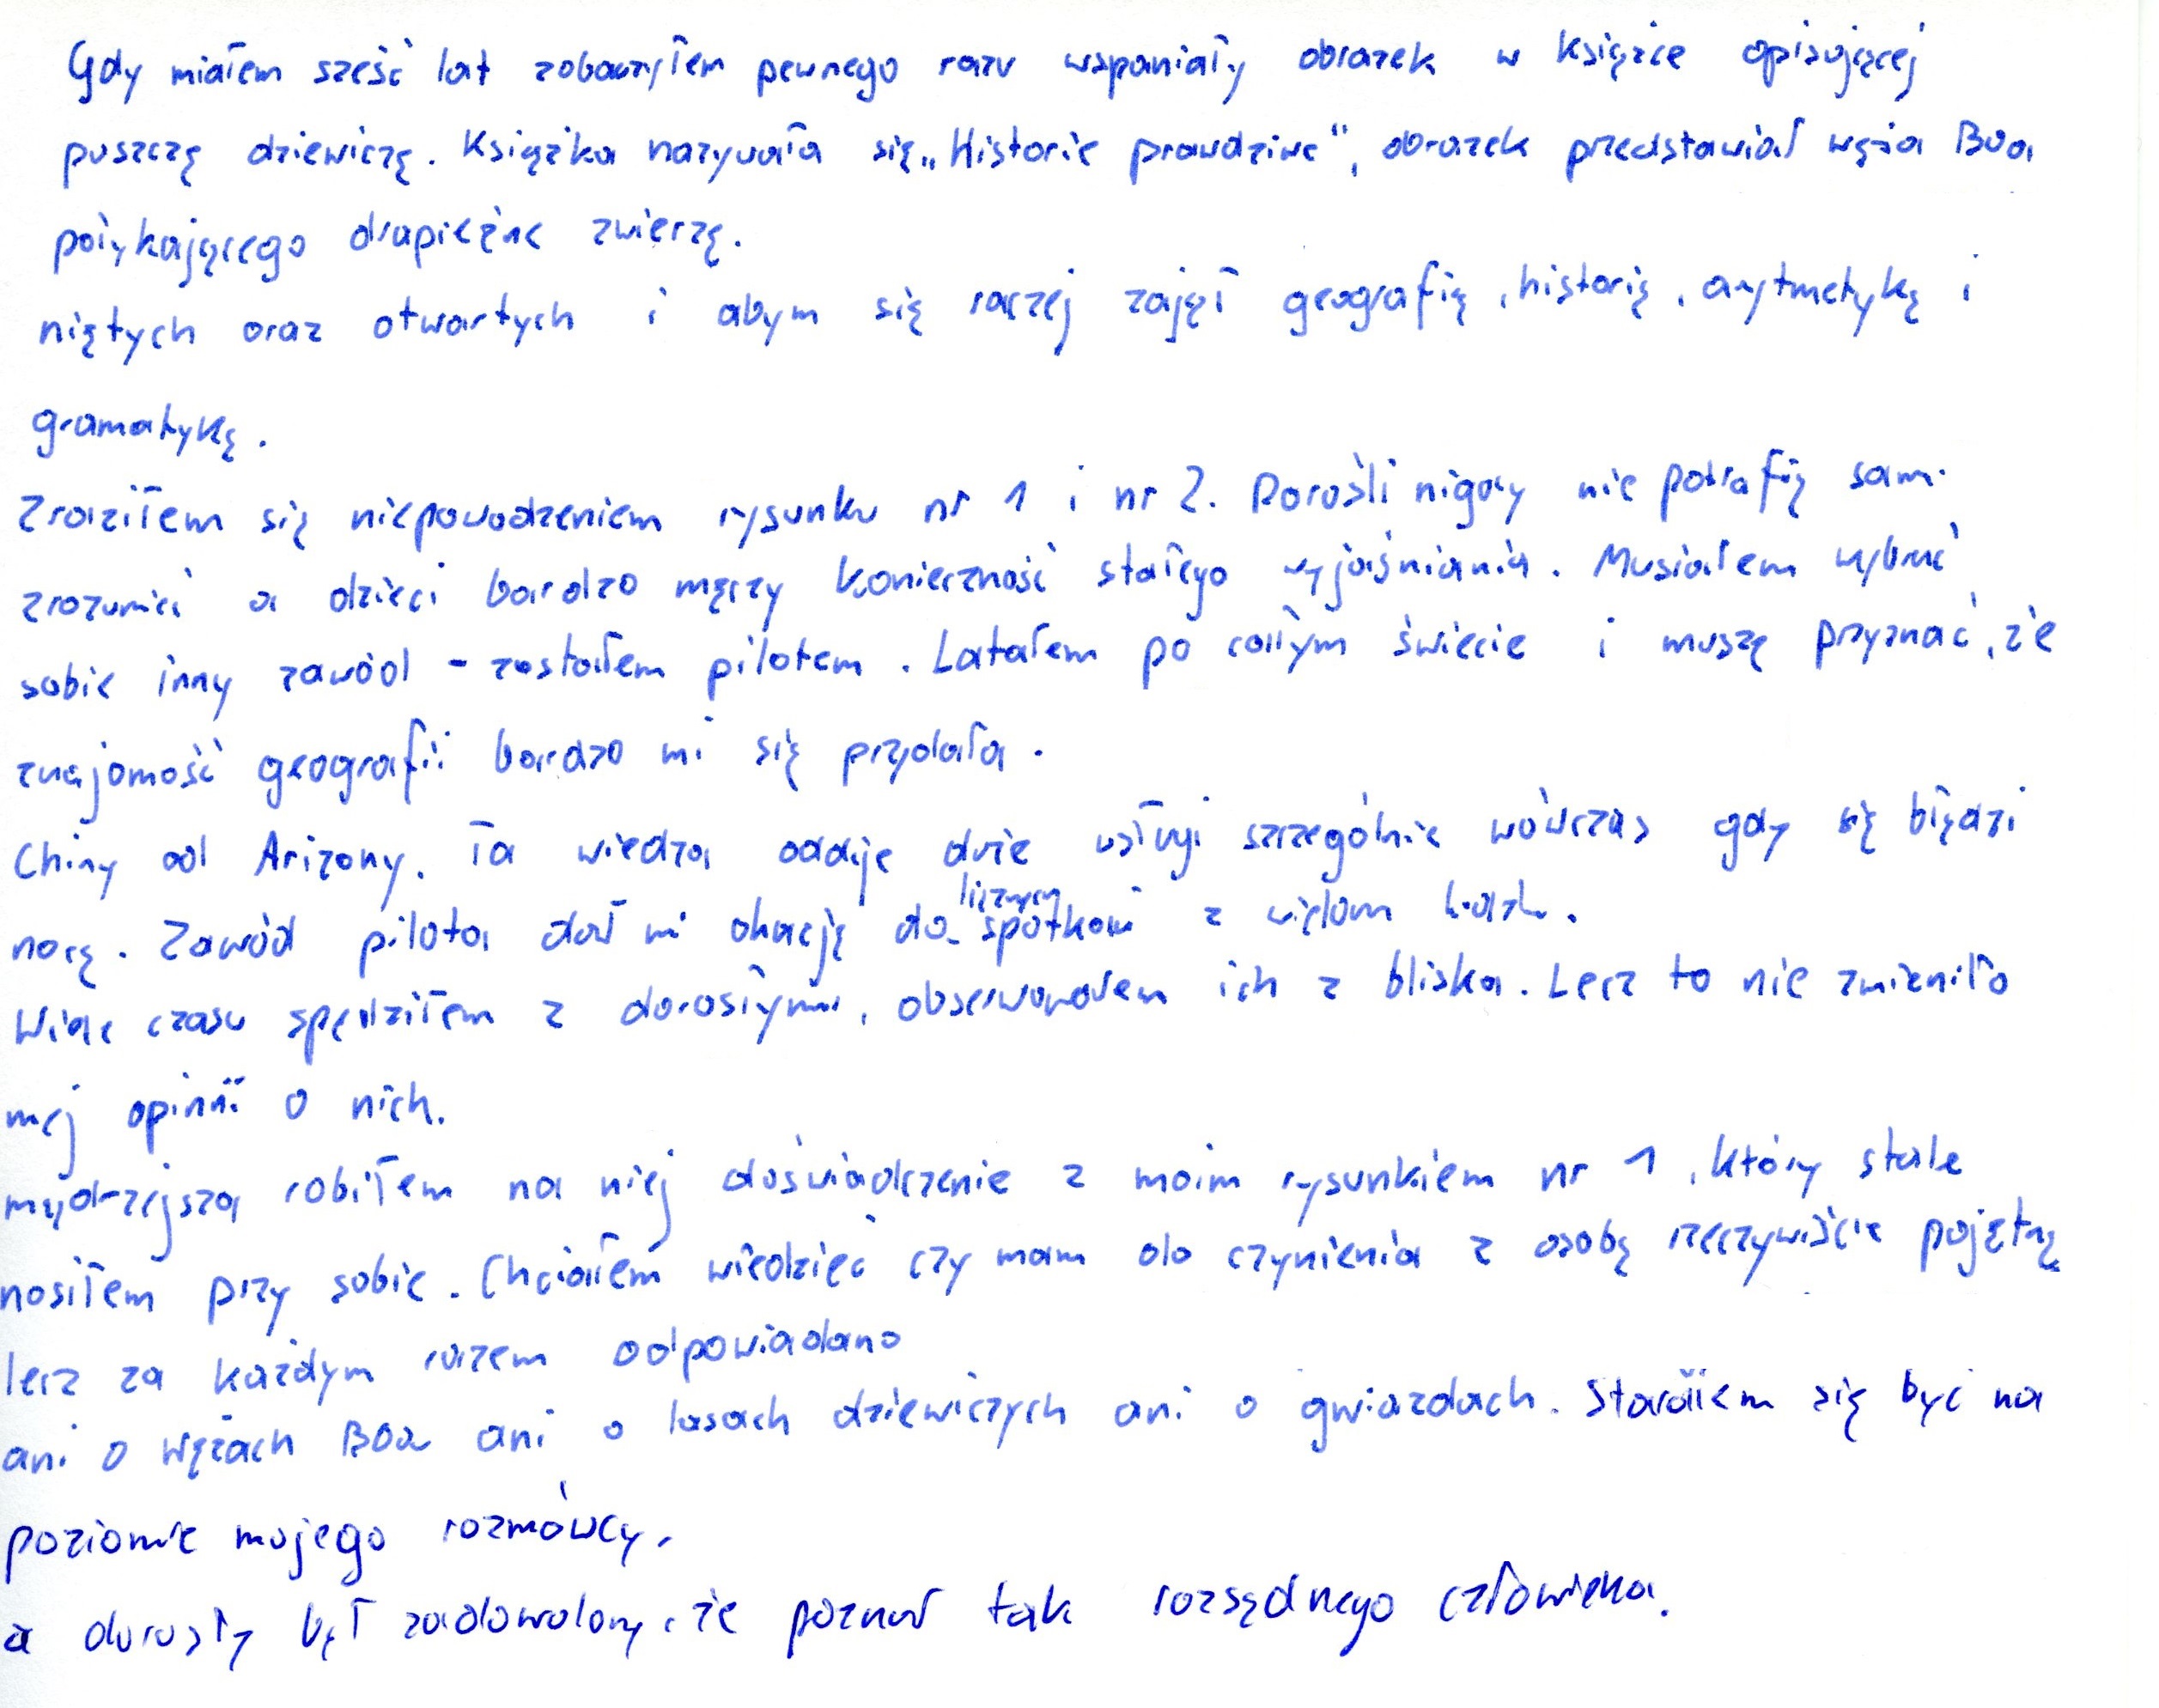 Gdy miałem sześć lat zobaczyłem pewnego razu wspaniały obrazek w książce opisującej
puszczę dziewiczą. Książka nazywała się „Historie prawdziwe", obrazek przedstawiał węża Boa
połykającego drapieżne zwierzę.
niętych oraz otwartych i abym się raczej zajął geografią, historią, arytmetyką i
gramatyką.
Zraziłem się niepowodzeniem rysunku nr 1 i nr 2. Dorośli nigdy nie potrafią sami
zrozumieć a dzieci bardzo męczy konieczność stałego wyjaśniania. Musiałem wybrać
sobie inny zawód - zostałem pilotem. Latałem po całym świecie i muszę przyznać, że
znajomość geografii bardzo mi się przydała.
Chiny od Arizony. Ta wiedza oddaje duże usługi szczególnie wówczas gdy się błądzi
nocą. Zawód pilota dał mi okazję do licznych spotkań z wieloma
Wiele czasu spędziłem z dorosłymi, obserwowałem ich z bliska. Lecz to nie zmieniło
mej opinii o nich.
mądrzejsza robiłem na niej doświadczenie z moim rysunkiem nr 1, który stale
nosiłem przy sobie. Chciałem wiedzieć czy mam do czynienia z osobą rzeczywiście pojętną
lecz za każdym razem odpowiadano
ani o wężach Boa ani o lasach dziewiczych ani o gwiazdach. Starałem się być na
poziomie mojego rozmówcy,
a dorosły był zadowolony, że poznał tak rozsądnego człowieka.